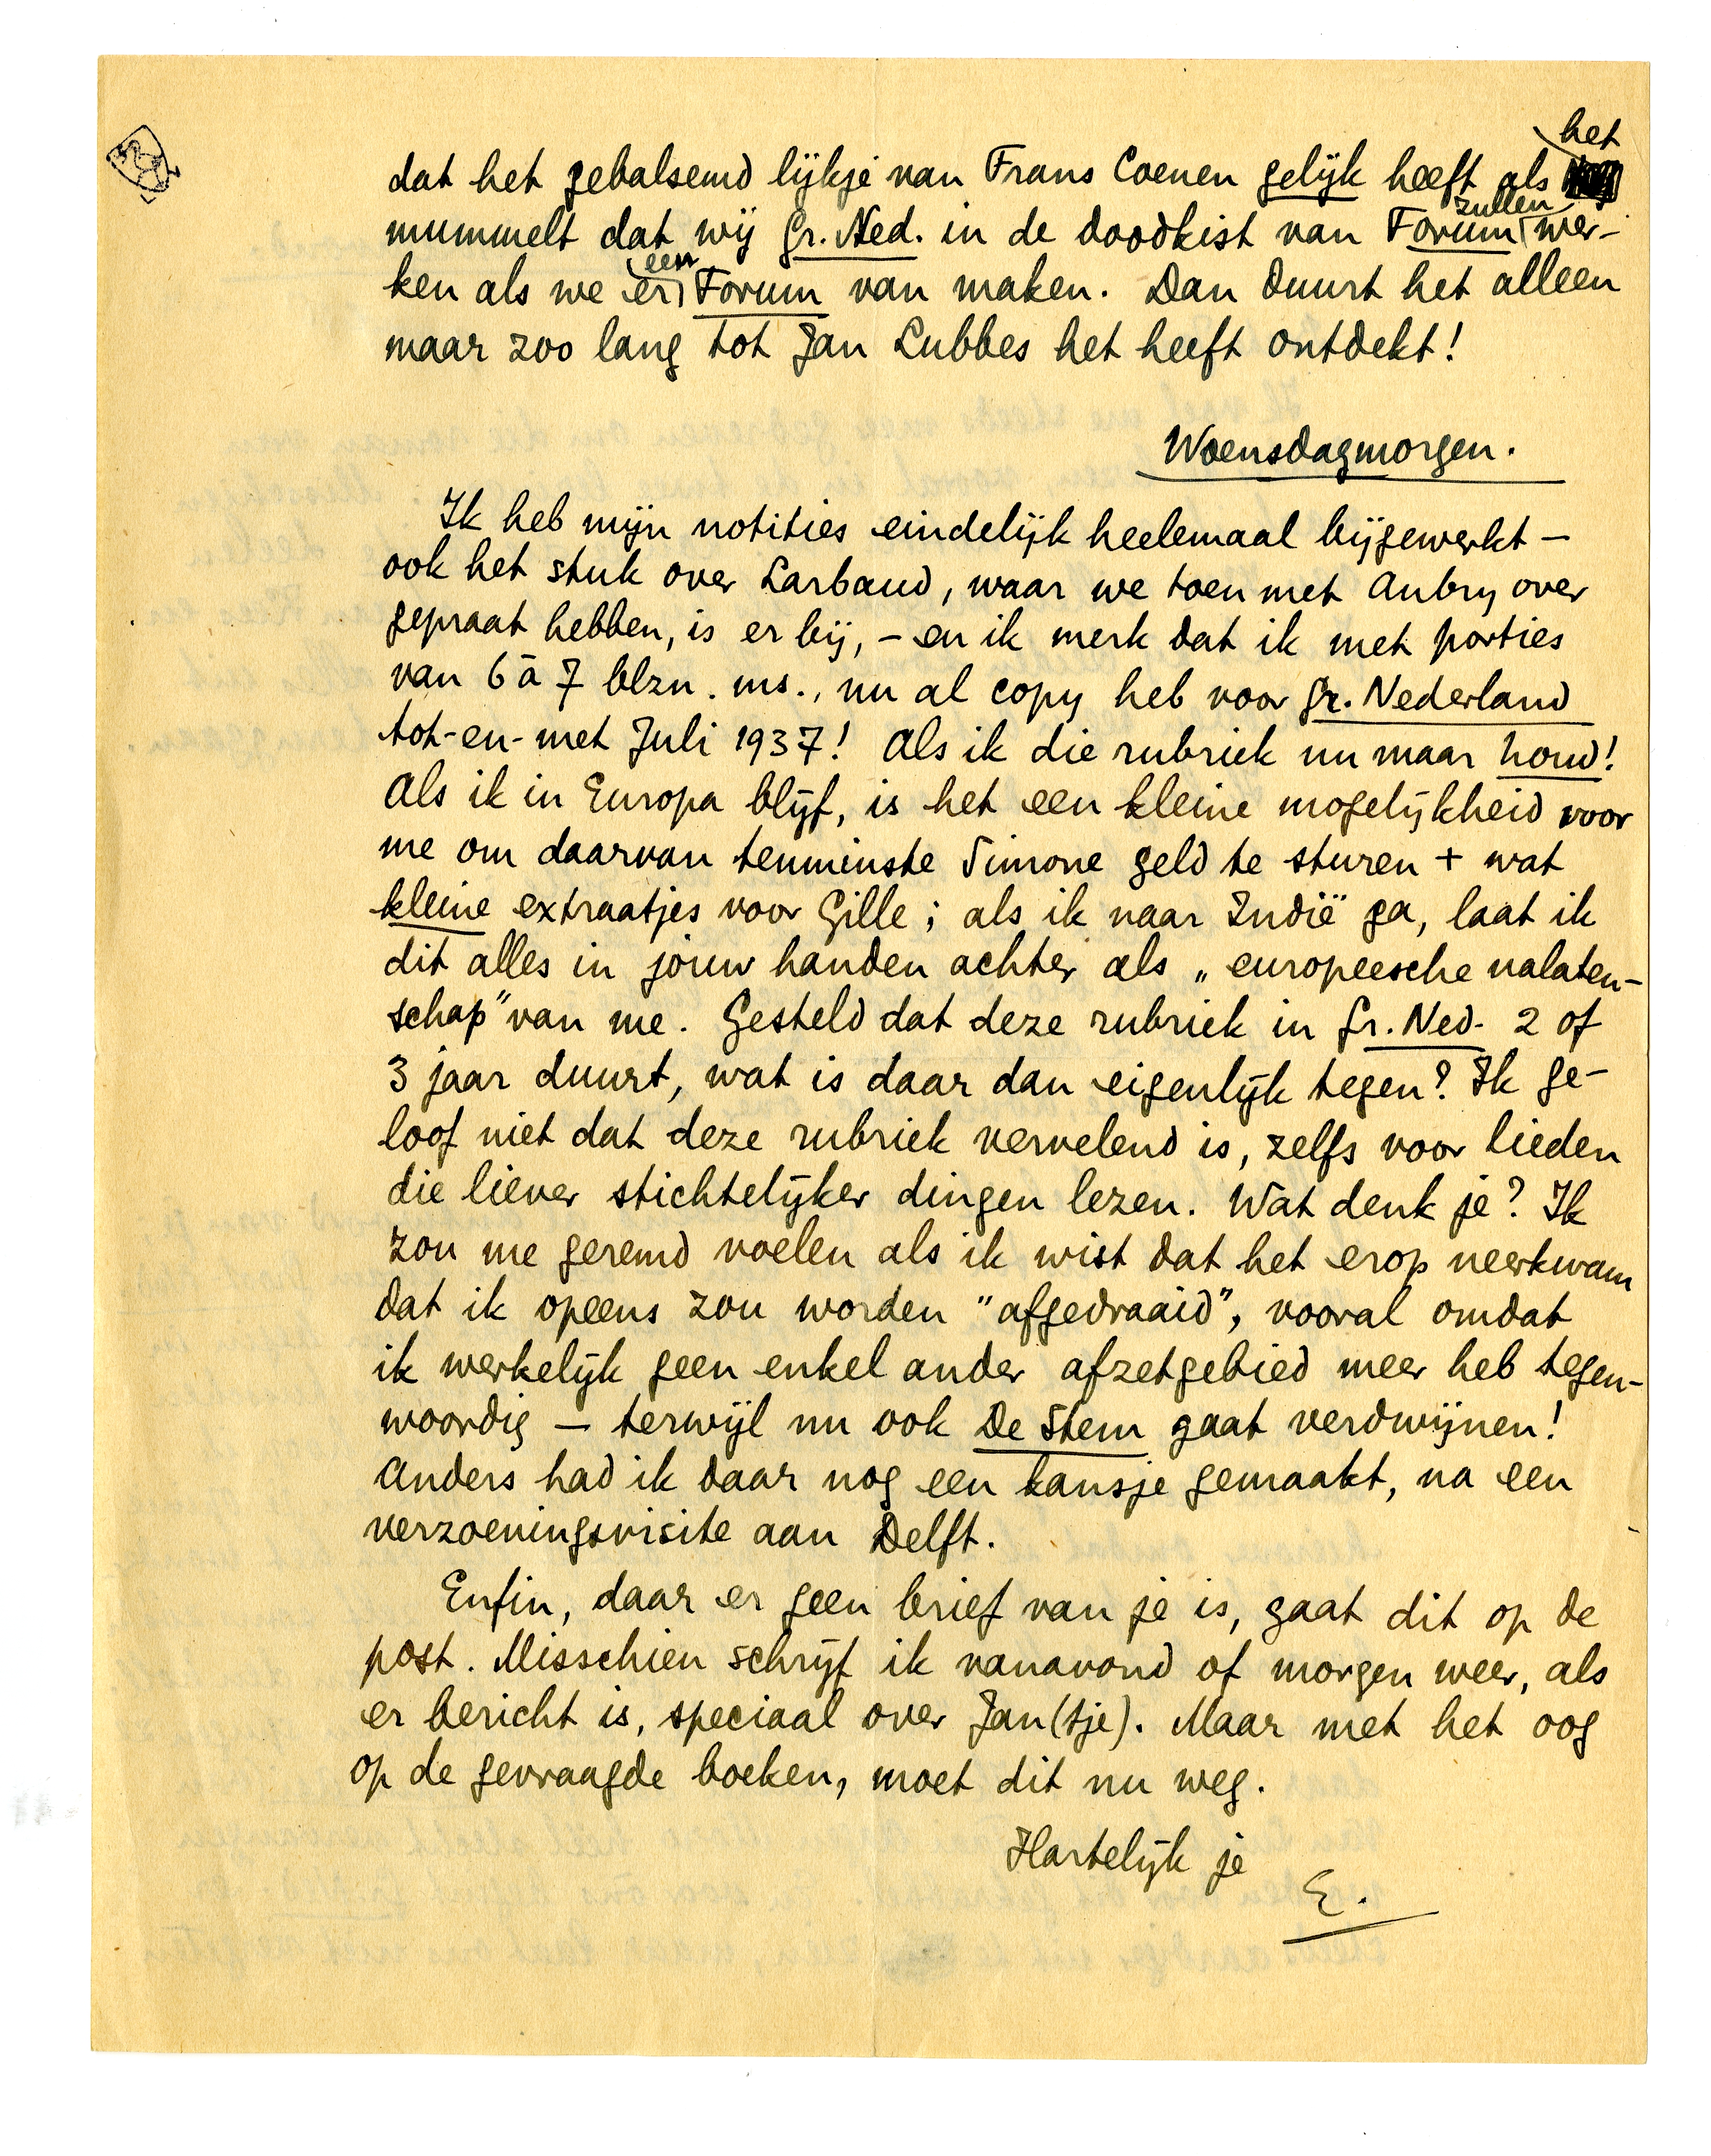 dat het gebalsemd lijkje van Frans Coenen gelijk heeft als het
mummelt dat wij Gr. Ned. in de doodkist van Forum zullen wer-
ken als we er een Forum van maken. Dan duurt het alleen
maar zoo lang tot Jan Lubbes het heeft ontdekt!
Woensdagmorgen.
Ik heb mijn notities eindelijk heelemaal bijgewerkt –
ook het stuk over Larbaud, waar we toen met Aubry over
gepraat hebben, is er bij, – en ik merk dat ik met porties
van 6 à 7 blzn. ms., nu al copy heb voor Gr. Nederland
tot-en-met Juli 1937! Als ik die rubriek nu maar houd!
Als ik in Europa blijf, is het een kleine mogelijkheid voor
me om daarvan tenminste Simone geld te sturen + wat
kleine extraatjes voor Gille; als ik naar Indië ga, laat ik
dit alles in jouw handen achter als „europeesche nalaten-
schap” van me. Gesteld dat deze rubriek in Gr. Ned. 2 of
3 jaar duurt, wat is daar dan eigenlijk tegen? Ik ge-
loof niet dat deze rubriek vervelend is, zelfs voor lieden
die liever stichtelijker dingen lezen. Wat denk je? Ik
zou me geremd voelen als ik wist dat het erop neerkwam
dat ik opeens zou worden "afgedraaid", vooral omdat
ik werkelijk geen enkel ander afzetgebied meer heb tegen-
woordig – terwijl nu ook De Stem gaat verdwijnen!
Anders had ik daar nog een kansje gemaakt, na een
verzoeningsvisite aan Delft.
Enfin, daar er geen brief van je is, gaat dit op de
post. Misschien schrijf ik vanavond of morgen weer, als
er bericht is, speciaal over Jan(tje). Maar met het oog
op de gevraagde boeken, moet dit nu weg.
Hartelijk je
E.